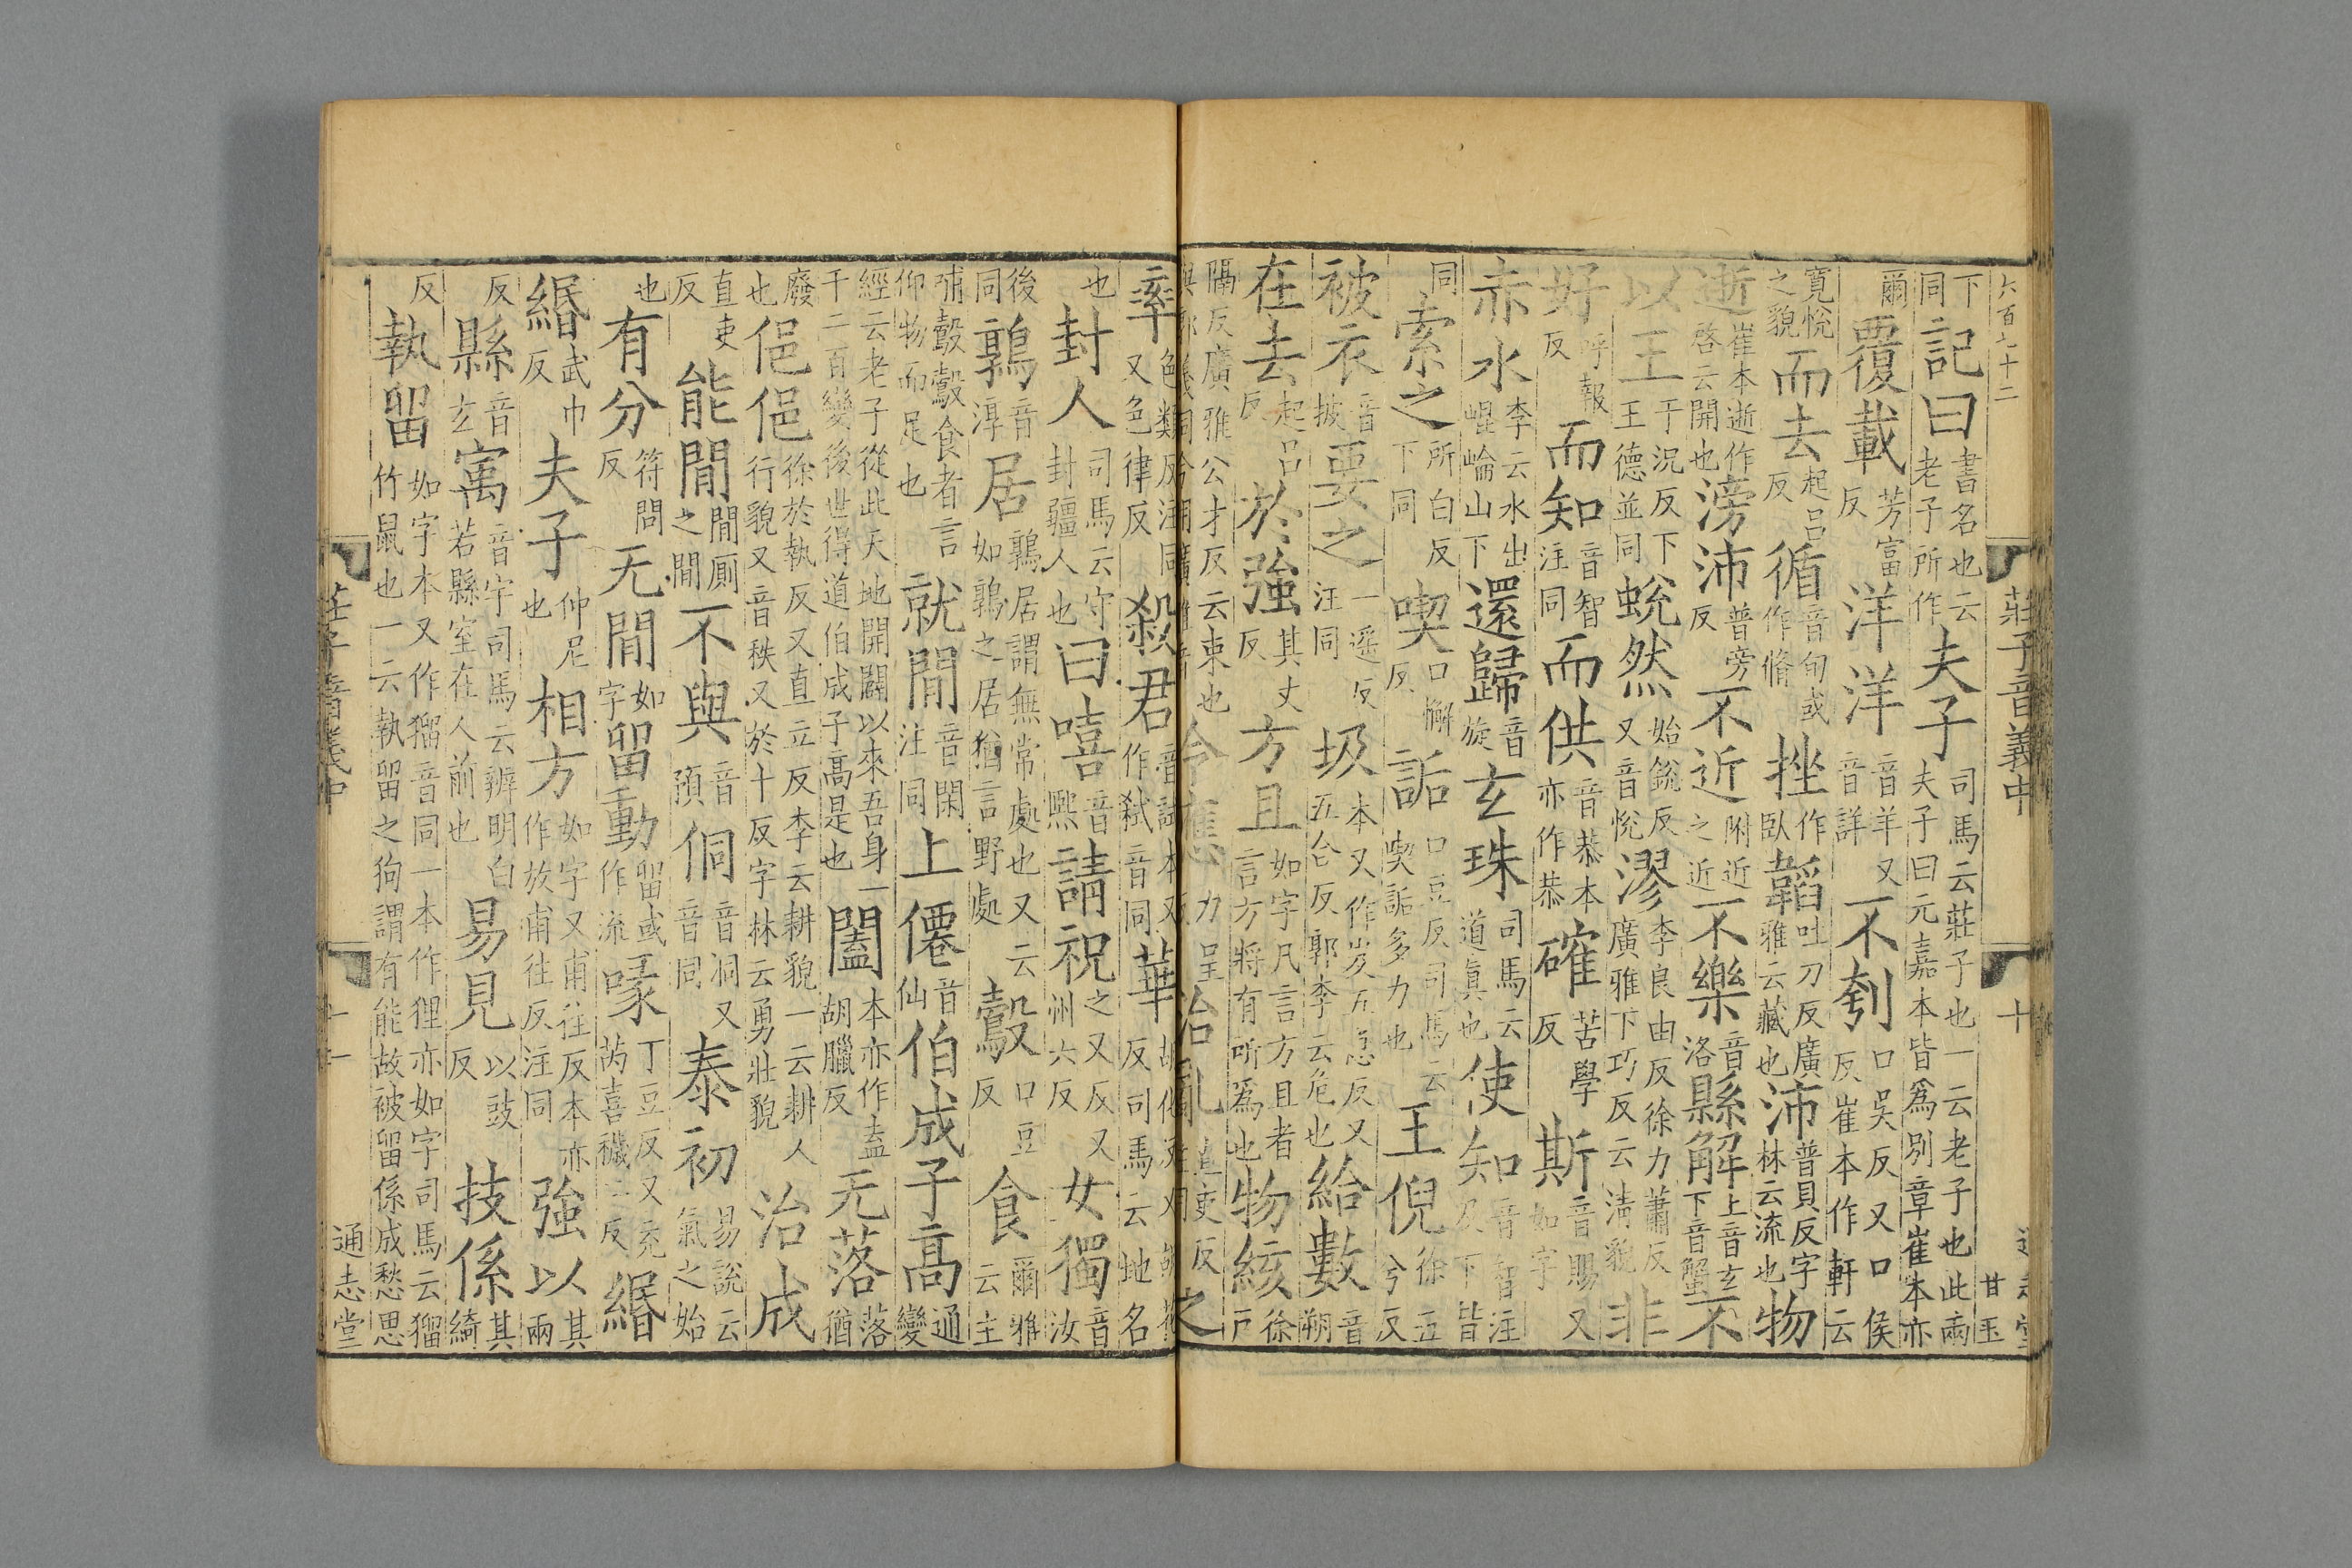 六百七十二 莊子音義中 十 甘玉
下同記曰書名也云老子所作夫子司馬云莊子也一云老子也此兩夫子曰元嘉本皆爲別章崔本亦
爾覆載芳富反洋洋音羊又音詳不刳口吳反又口侯反崔本作軒云
寬悅之貌而去起呂反循音旬或作脩挫作臥韜吐刀反廣雅云藏也沛普貝反字林云流也物
逝崔本逝作啓云開也滂沛普旁反不近附近之近不樂音洛縣解上音玄下音蟹不
以王于況反下王德並同蛻然始銳反又音悅漻李良由反徐力蕭反廣雅下巧反云淸貌非
好呼報反而知音智注同而供音恭本亦作恭確苦學反斯音賜又如字
赤水李云水出崐崘山下還歸音旋玄珠司馬云道眞也使知音智注及下皆
同索之所白反下同喫口懈反詬口豆反司馬云喫詬多力也王倪徐五兮反
被衣音披要之一遥反注同圾本又作岌五急反又五合反郭李云危也給數音朔
在去起呂反於強其丈反方且如字凡言方且者言方將有所爲也物絃徐戶
隔反廣雅公才反云束也令應力呈治亂直吏反之
率色類反注同又色律反殺君音試本又作弑音同華胡化反又胡花反司馬云地名
也封人司馬云守封疆人也曰嘻音熙請祝之又反又州六反女獨音汝
後同鶉音淳居鶉居謂無常處也又云如鶉之居猶言野處鷇口豆反食爾雅云主
哺鷇鷇食者言仰物而足也就閒音閑注同上僊音仙伯成子高通變
經云老子從此天地開闢以來吾身一千二百變後世得道伯成子高是也闔本亦作盍胡臘反无落落猶
廢也俋俋徐於執反又直立反李云耕貌一云耕人行貌又音秩又於十反字林云勇壯貌治成
直吏反能閒閒厠之閒不與音預侗音洞又音同泰初易說云氣之始
也有分符問反无閒如字留動留或作流喙丁豆反又充芮喜穢二反緡
緡武巾反夫子仲尼也相方如字又甫往反本亦作放甫往反注同強以其兩
反縣音玄寓音宇司馬云辨明白若縣室在人前也易見以豉反技係其綺
反執留如字本又作㺧音同一本作狸亦如字司馬云㺧竹鼠也一云執留之狗謂有能故被留係成愁思
莊子音義中 十一 通志堂